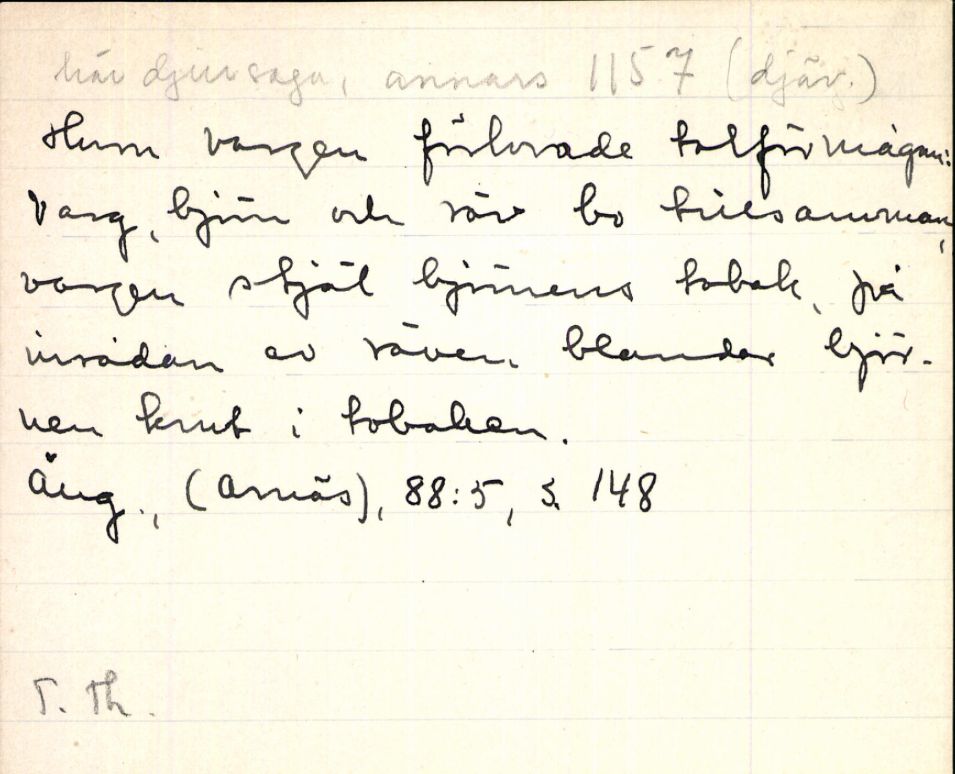 här djursaga, annars 1157 (djäv.)
Hum vargen förlorade talförmågan:
Varg, björn och räv bo tillsamman,
vargen stjäl björnens tobak, på
inrådan av räven blandar björ-
nen krut i tobaken.
Ång., (Arnäs), 88:5, S. 148
T. Th.